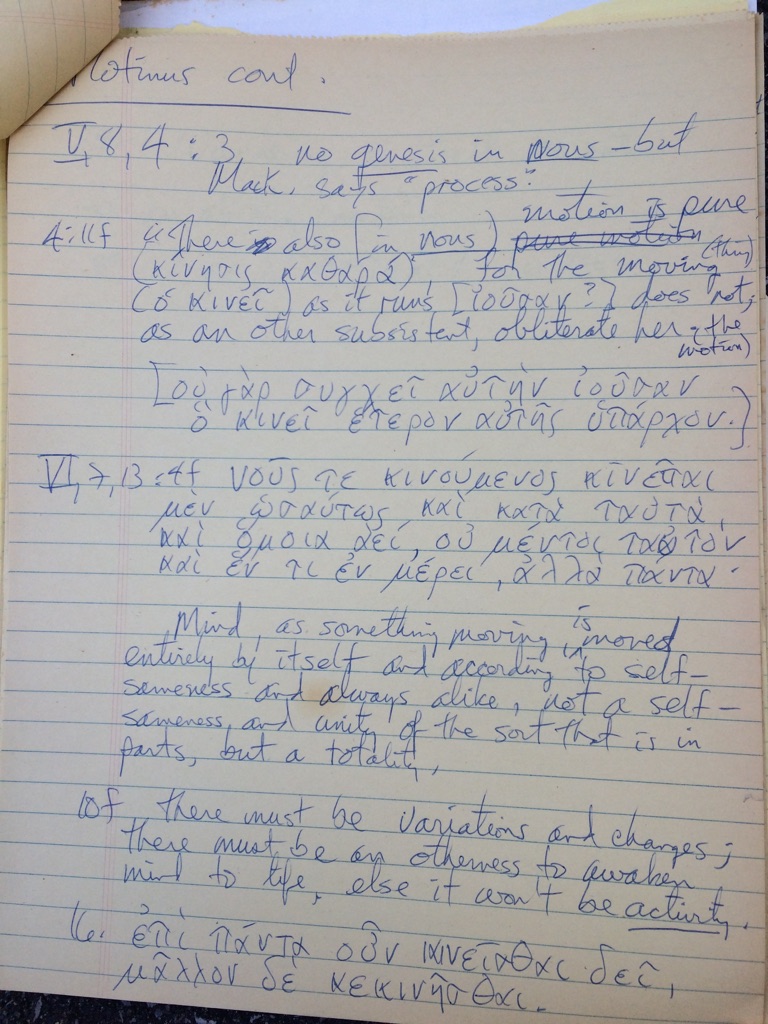 Plotinus cont.
V, 8, 4 : 3 no genesis in nous - but
Mack. says "process".
4:11f "There is also [in nous] motion is pure
(κίνησις καθαρά), for the moving (thing)
(ὃ κινεῖ) as it runs [ἰοῦσαν?] does not,
as an other subsistent, obliterate her (the
motion)
[οὐ γὰρ συγχεῖ αὐτὴν ἰοῦσαν
ὃ κινεῖ ἕτερον αὐτῆς ὑπάρχον.]
VI, 7, 13 : 4f νοῦς τε κινούμενος κινεῖται
μὲν ὡσαύτως καὶ κατὰ ταὐτὰ,
καὶ ὅμοια ἀεί, οὐ μέντοι ταὐτὸν
καὶ ἕν τι ἐν μέρει, ἀλλὰ πάντα·
Mind, as something moving, is moved
entirely by itself and according to self-
sameness and always alike, not a self-
sameness and unity of the sort that is in
parts, but a totality,
10f there must be variations and changes;
there must be an otherness to awaken
mind to life, else it won't be activity.
16. ἐπὶ πάντα οὖν κινεῖσθαι δεῖ,
μᾶλλον δὲ κεκινῆσθαι.